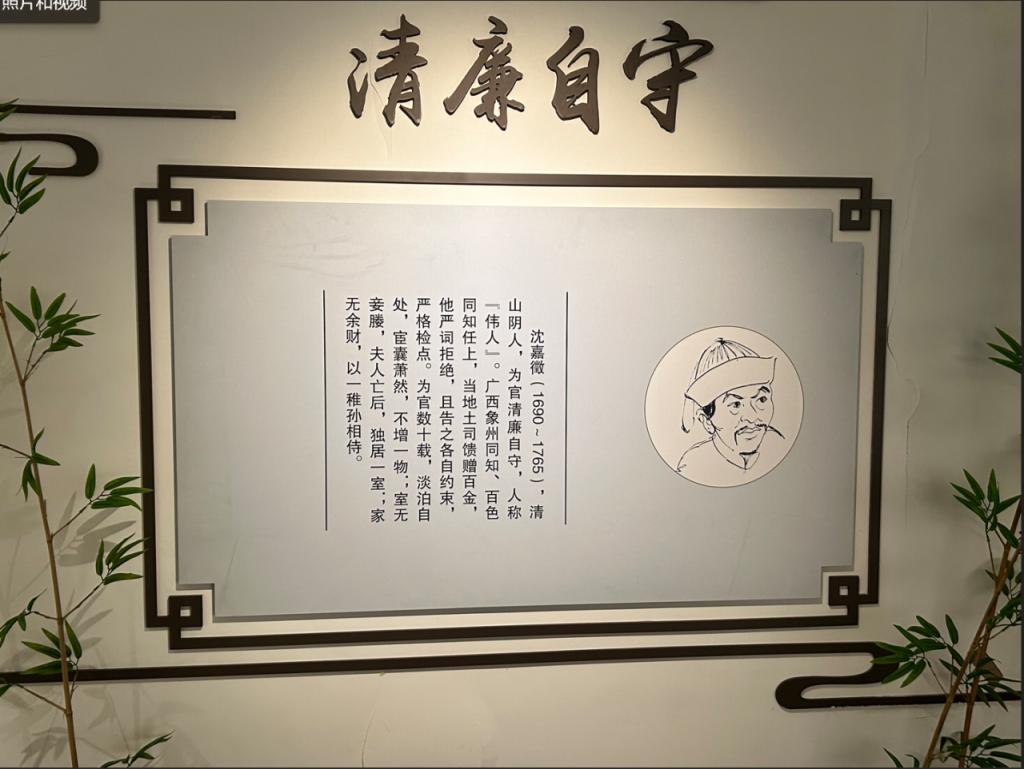 照片和视频
清廉自守
沈嘉徵（1690～1765），清
山阴人，为官清廉自守，人称
『伟人』。广西象州同知、百色
同知任上，当地土司馈赠百金，
他严词拒绝，且告之各自约束，
严格检点。为官数十载，淡泊自
处，宦囊萧然，不增一物；室无
妾媵，夫人亡后，独居一室；家
无余财，以一稚孙相侍。